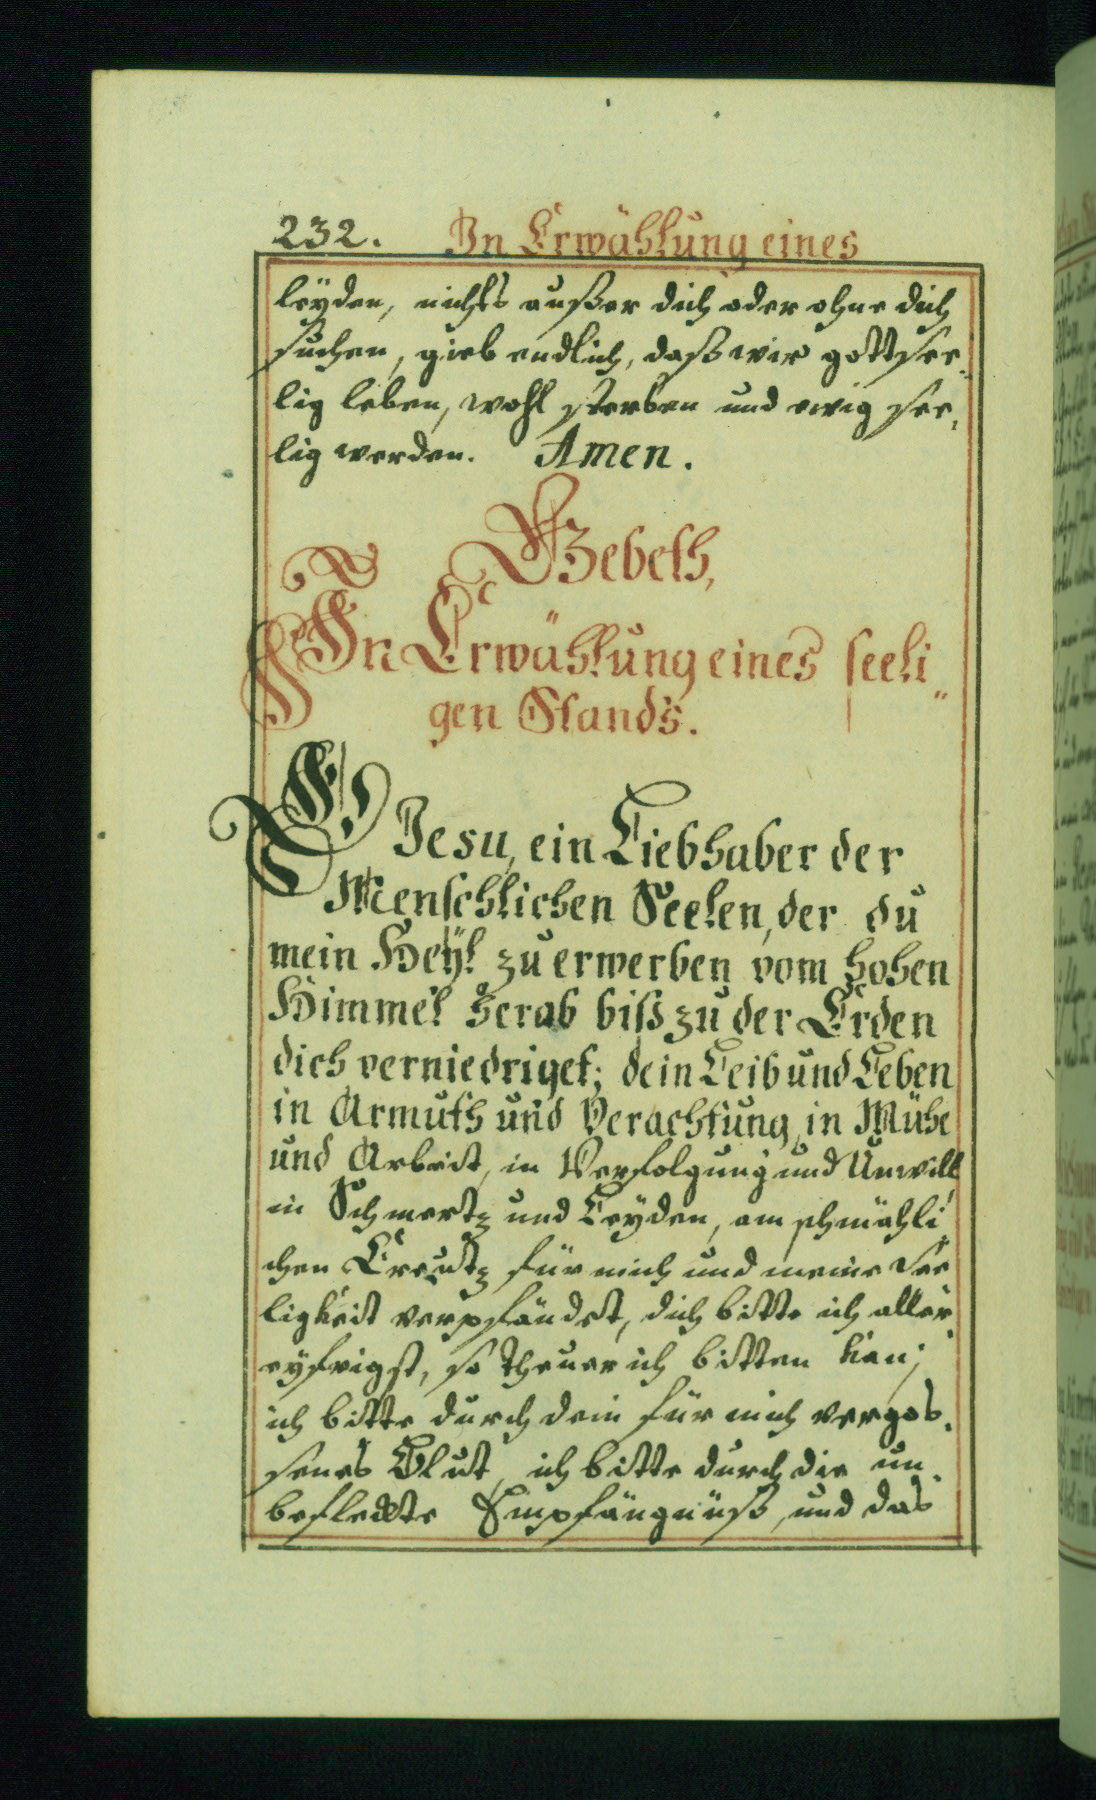 232. In Erwählung eines
leÿden, nichts außer dich oder ohne dich
suchen, gieb endlich, daß wir gottsee-
lig leben, wohl sterben und ewig see-
lig werden. Amen.
Gebeth,
In Erwählung eines seeli
gen Stands.
O Jesu, ein Liebhaber der
Menschlichen Seelen, der du
mein Heÿl zu erwerben vom hohen
Himmel herab biß zu der Erden
dich verniedriget; dein Leib und Leben
in Armuth und Verachtung, in Mühe
und Arbeit, in Verfolgung und Unwill
in Schmertz und Leyden, am schmähli
chen Creutz für mich und meine See
ligkeit verpfändet, dich bitte ich aller
eÿfrigst, so theuer ich bitten kan;
ich bitte durch dein für mich vergos-
senes Blut, ich bitte durch die un
befleckte Empfängnüß, und das